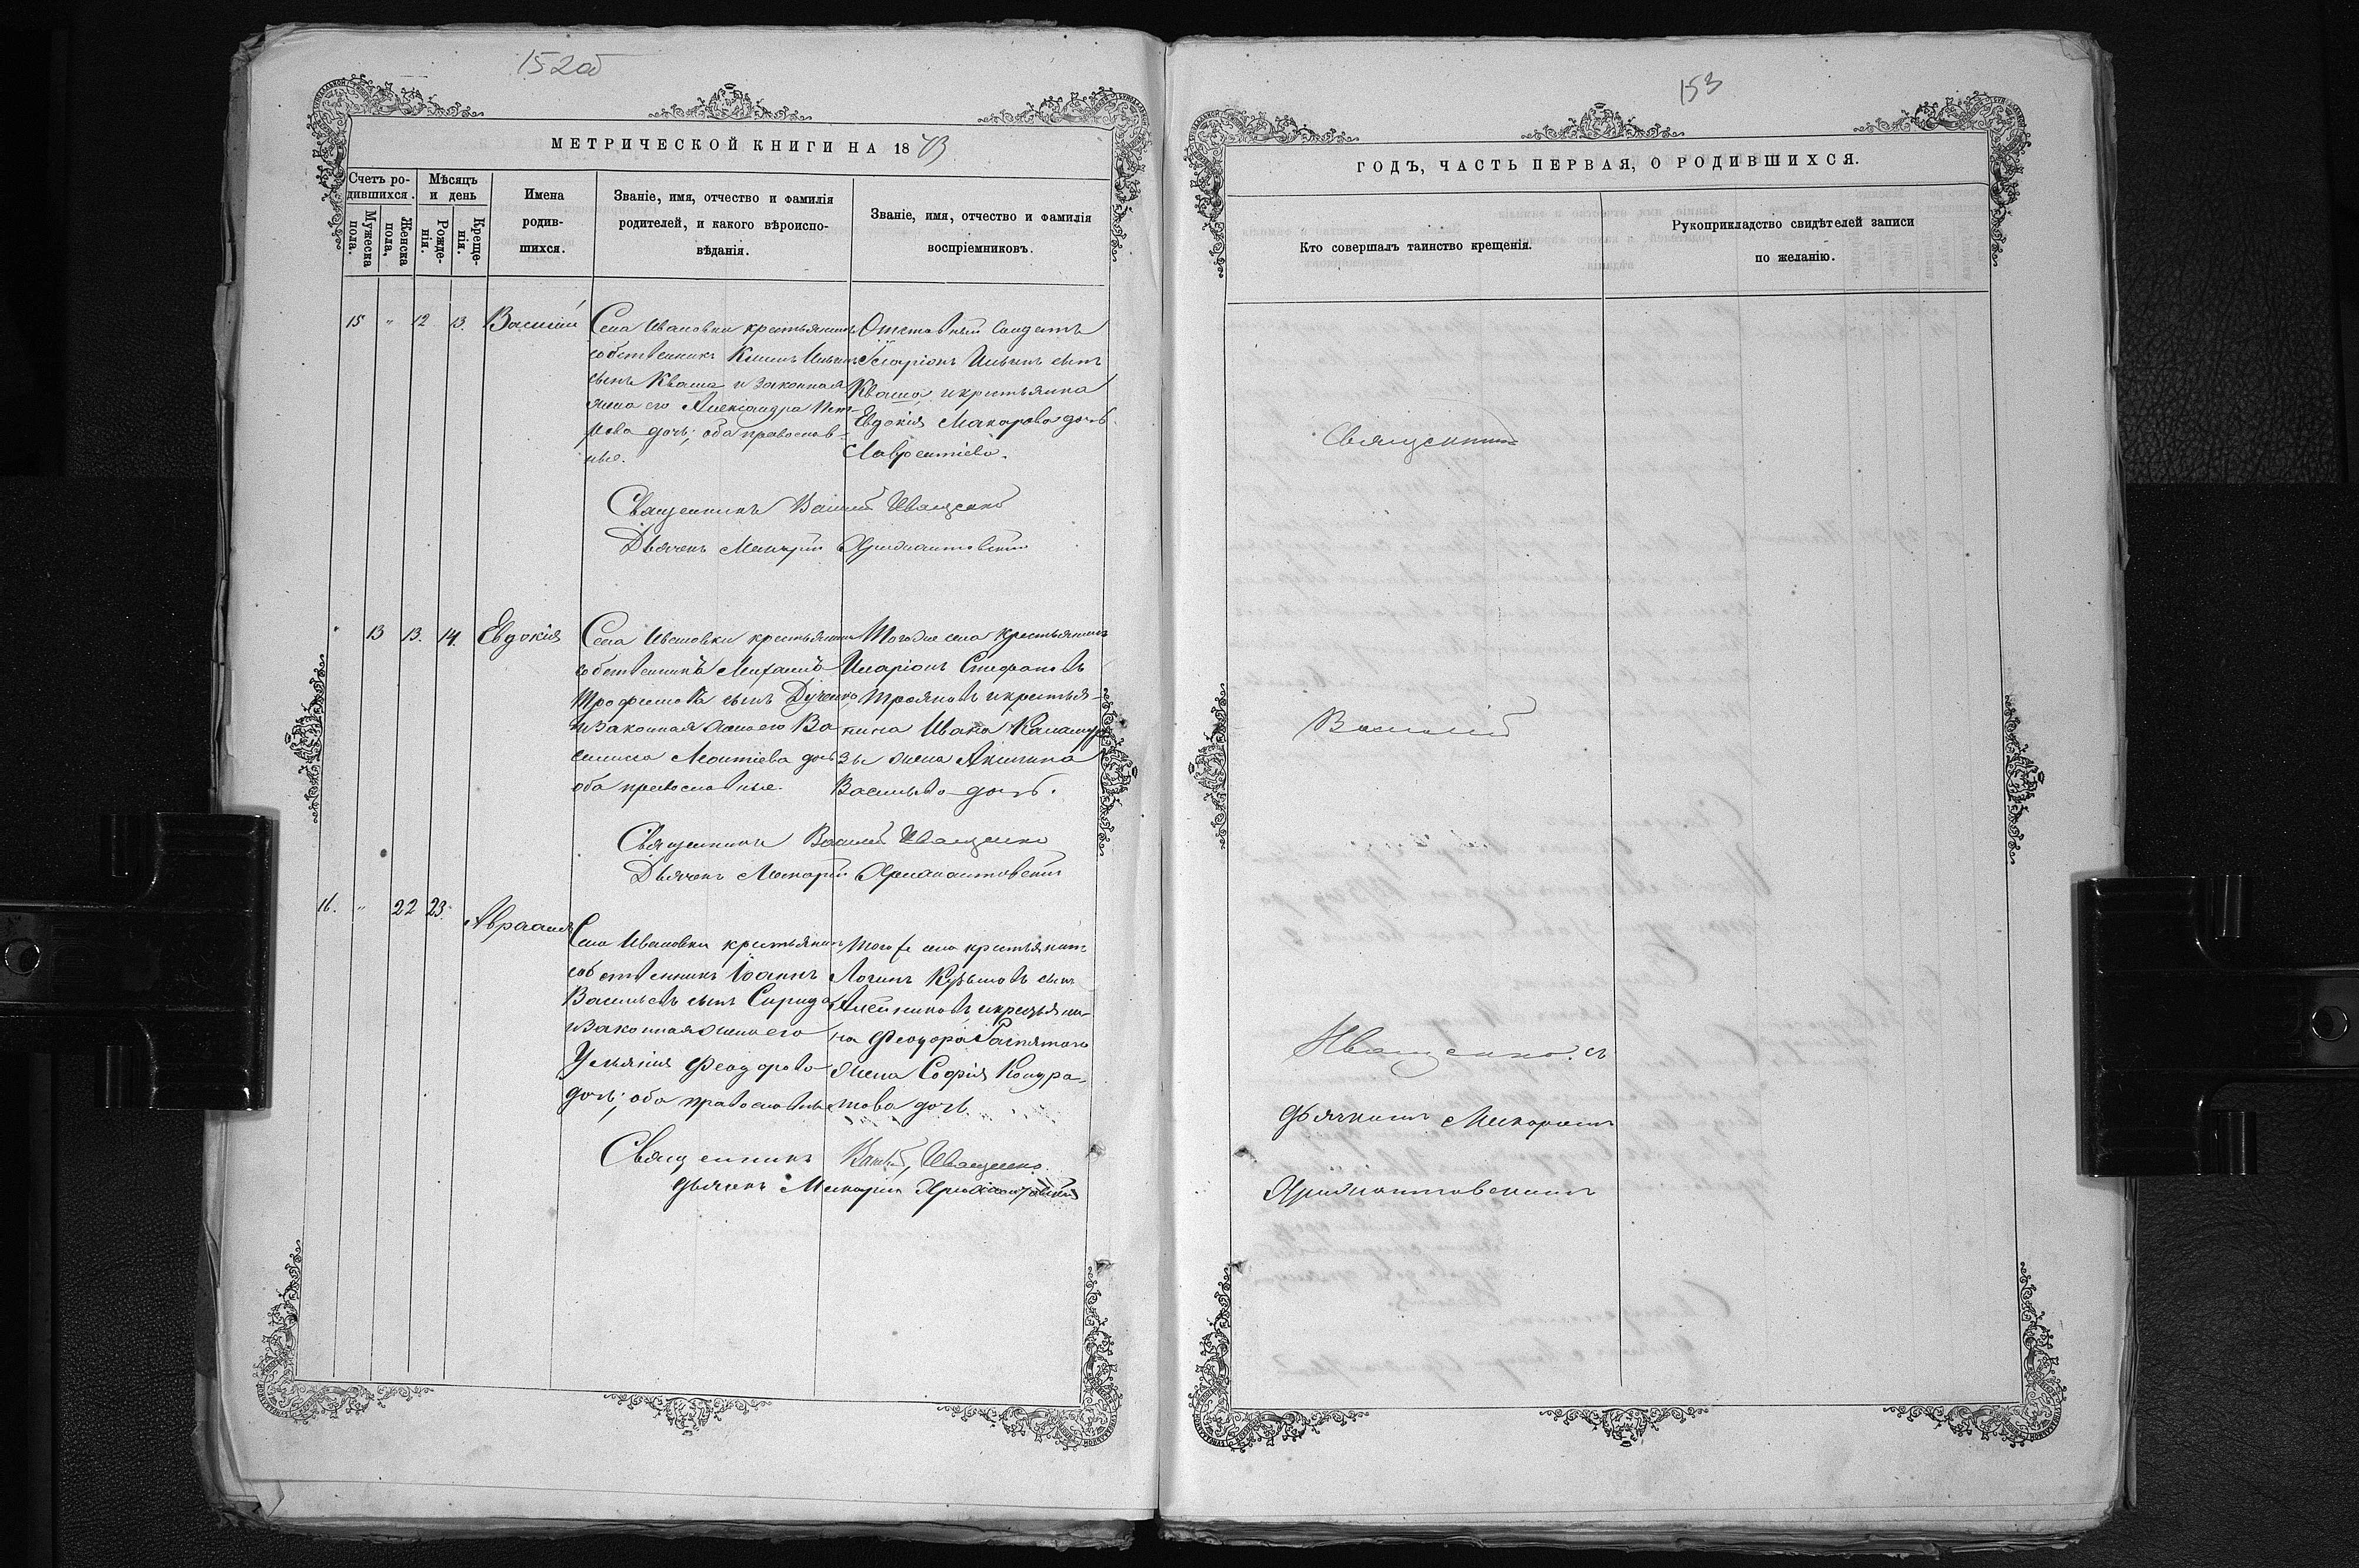 152об
МЕТРИЧЕСКОЙ КНИГИ НА 1873
Счетъ ро-
дившихся.
Мужеска
пола.
Женска
пола.
Мѣсяцъ
и день
Рожде-
нія.
Креще-
нія.
Имена
родив-
шихся.
Званіе, имя, отчество и фамилія
родителей, и какого вѣроиспо-
вѣданія.
Званіе, имя, отчество и фамилія
воспріемниковъ.
15 " 12 13. Василій
Села Ивановки крестьянинъ
собственникъ Ильинъ
сынъ Кваша и законная
жена его Александра Пет-
рова дочь; оба православ-
ные.
Отставный Солдатъ
Іларіонъ Ильинъ сынъ
Кваша и крестьянка
Евдокія Макарова дочь
Лаврентіева.
Священникъ Василій Иващенко
Дьячекъ Макарій
13 13. 14. Евдокія
Села Ивановки крестьянинъ
собственникъ Михаилъ
Трофимовъ сынъ
и законная жена его Ва
силиса Леонтіева дочь
оба православные.
Тогоже села крестьянинъ
Иларіонъ Стефановъ
Трояновъ и крестья-
нина Ивана
жена Акилина
Васильева дочь.
Священникъ Василій Иващенко
Дьячекъ Макарій
16. " 22 23. Авраамъ
Села Ивановки крестьянинъ
собственникъ Іоаннъ
Васильевъ сынъ
и законная жена его
Ульянія Феодорова
дочь; оба православные
Того же села крестьянинъ
Логинъ сынъ
Алейниковъ и крестьяни-
на Феодора
жена Софія Кондра-
това дочь.
Священникъ Василій Иващенко.
Дьячекъ Макарій
153
ГОДЪ, ЧАСТЬ ПЕРВАЯ, О РОДИВШИХСЯ.
Кто совершалъ таинство крещенія.
Рукоприкладство свидѣтелей записи
по желанію.
Священникъ
Василій
Иващенко. съ
дьячкомъ Макаріемъ